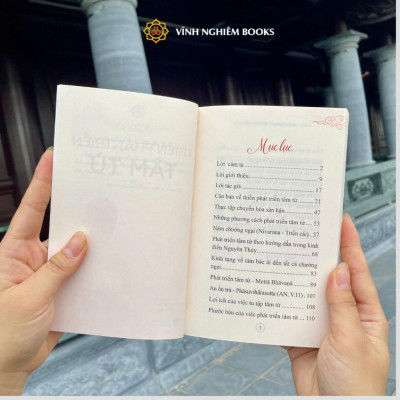 VĨNH NGHIÊM BOOKS
Mục lục
Lời cảm tạ 2
Lời giới thiệu 9
Lời tác giả 17
Căn bản về thiền phát triển tâm từ 21
Thực tập chuyển hóa sân hận 47
Những phương cách phát triển tâm từ 53
Năm chướng ngại (Nivarana - Triền cái) 57
Phát triển tâm từ theo hướng dẫn trong kinh
điển Nguyên Thủy 68
Kinh tụng về tâm bác ái đến tất cả chướng
ngại 83
Phát triển tâm từ - Mettā Bhāvanā 89
An ổn trú - Phāsuvihārasutta (AN. V.11) 101
Lợi ích của việc tu tập tâm từ 108
Phước báu của việc phát triển tâm từ 110
TÂM TỪ